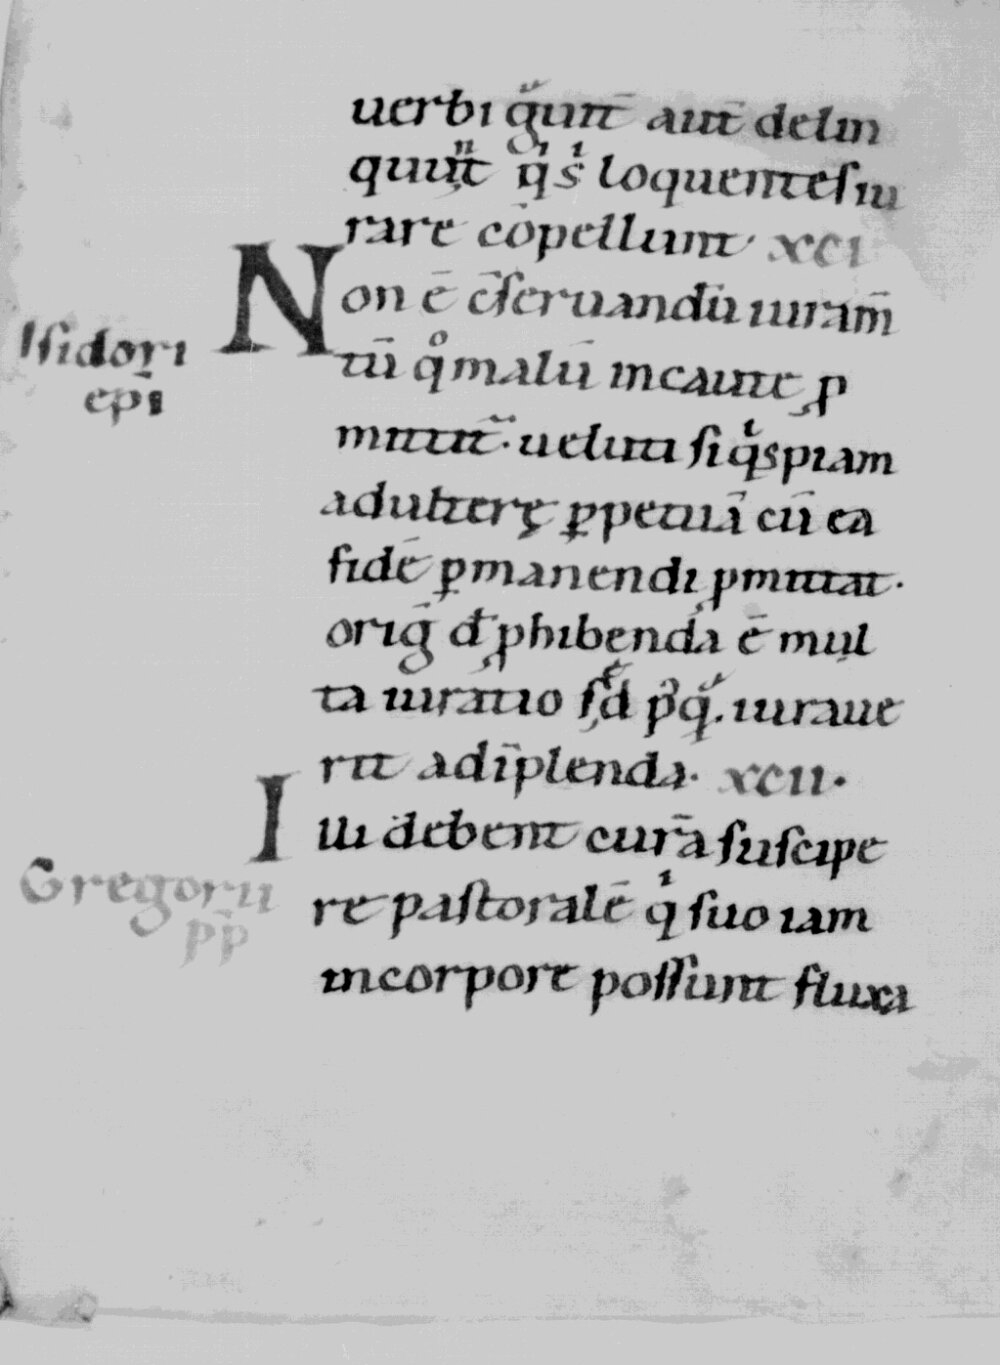 uerbi gᷓunt̄ aut̄ delin
quuntͫ qͥ sͥ loquentes iu
rare cōpellunt· XCI
Non ē c̄seruandū iuram̄
Isidori
tū qͦ malū incaute ꝓ
ep̄i
mittit̄· ueluti si qͥspiam
adulterę ꝑpetuā cū ea
fidē ꝑmanendi ꝓmittat·
oriḡ đ ꝓhibenda ē mul
ta iuratio sed p̄qᷓ· iuraue
rit adīplenda· XCII·
Illi debent curā suscipe
Gregorii
re pastoralē qͥ suo iam
pp̄
incorpore possunt fluxa